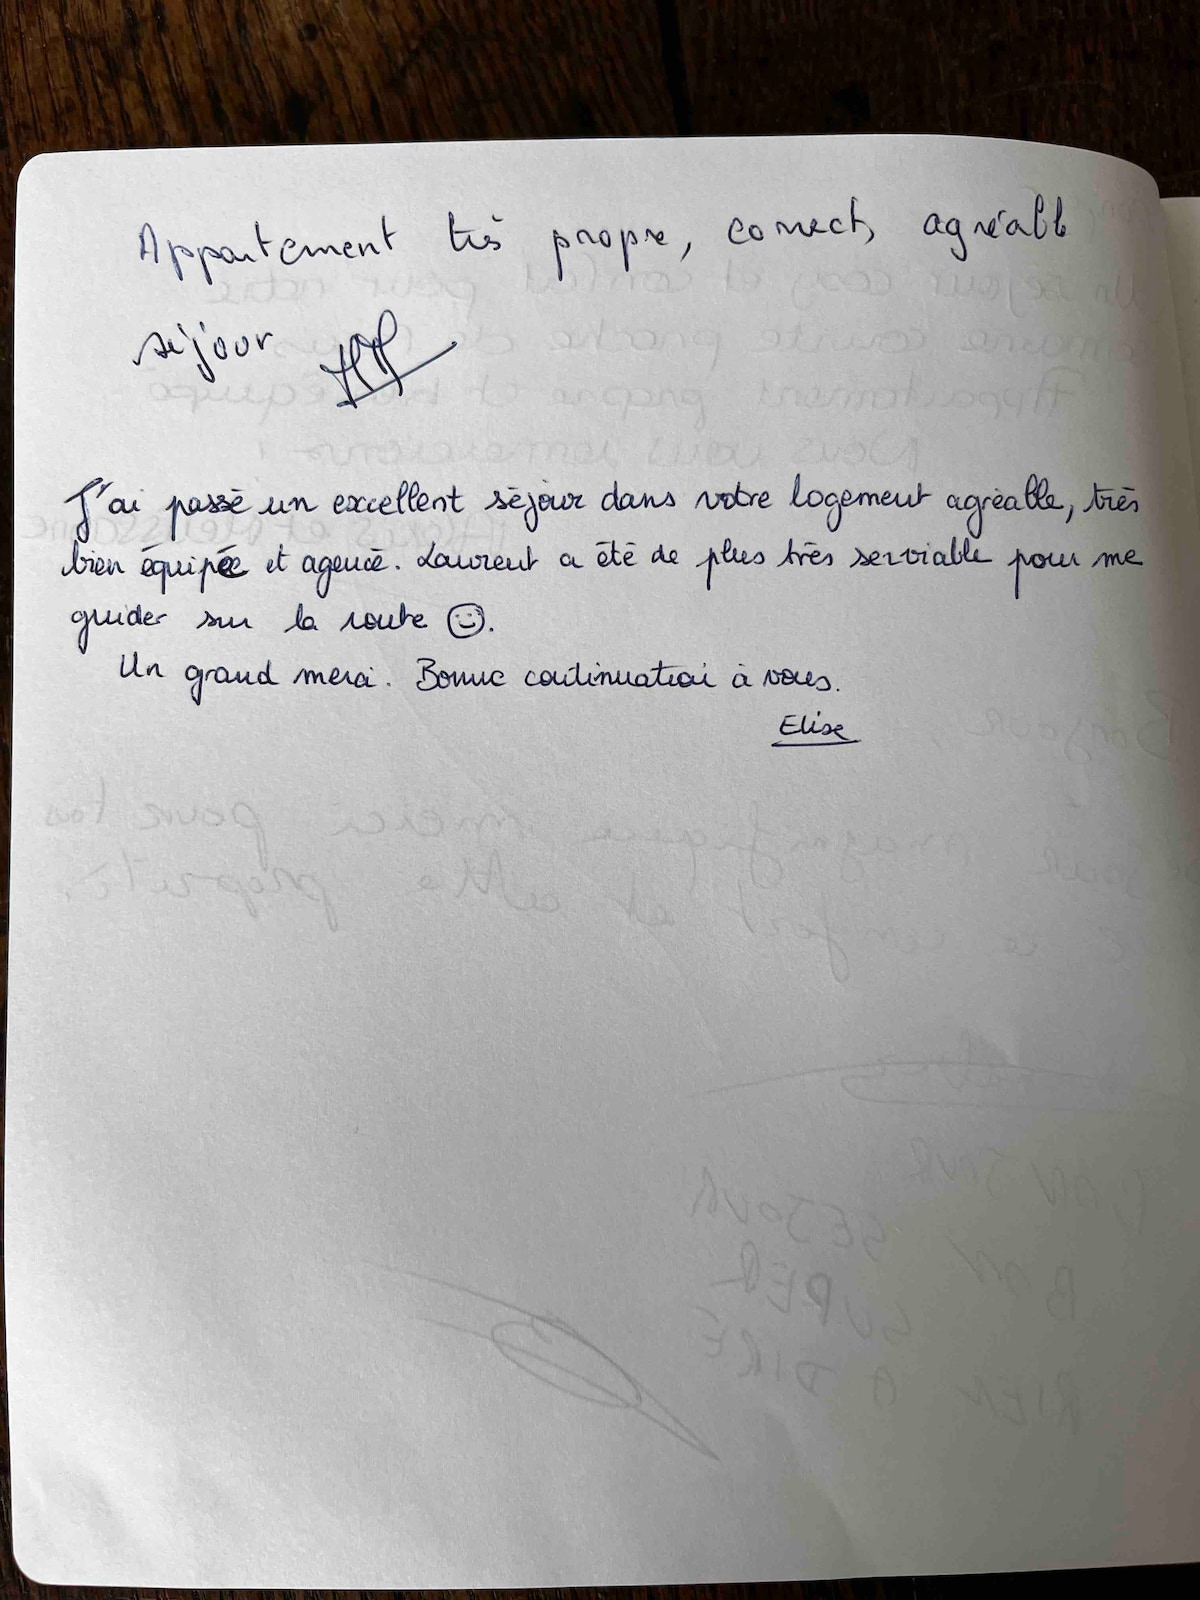 Appartement très propre, correct, agréable
séjour
J'ai passé un excellent séjour dans votre logement agréable, très
bien équipée et agencé. Laurent a été de plus très serviable pour me
guider sur la route ☺.
Un grand merci. Bonne continuation à vous.
Elise